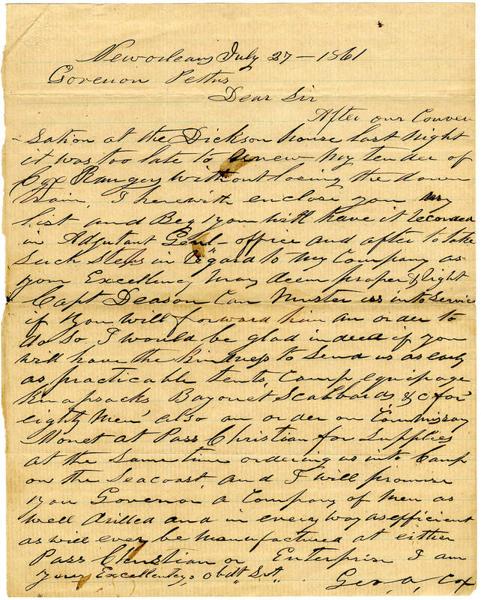 New orleans July 27 - 1861
Govenor Pettus
Dear Sir
After our Conver
sation at the Dickson House last Night
it was too late to renew My tender of
Cox Rangers without losing the down
train, I herewith enclose you my
list and Beg you will have it recorded
in Adjutant Genl- office and after to take
Such Steps in regard to My Company as
your Excellency May deem proper & right
Capt Deason Can Muster us into Service
if you will forward him an order to
do so I would be glad indeed if you
will have the Kindness to Send us as early
as practicable tents, Camp equipage
Knapsacks Bayonet Scabbards &c for
eighty Men also an order on Commissary
Monet at Pass Christian for Supplies
at the Same time ordering us into Camp
on the Seacoast, and I will promise
you Governor a Company of Men as
well drilled and in every way as efficient
as will ever be Manufactured at either
Pass Christian or Enterprise I am
your Excellencys obdt Svt
Geo, A, Cox